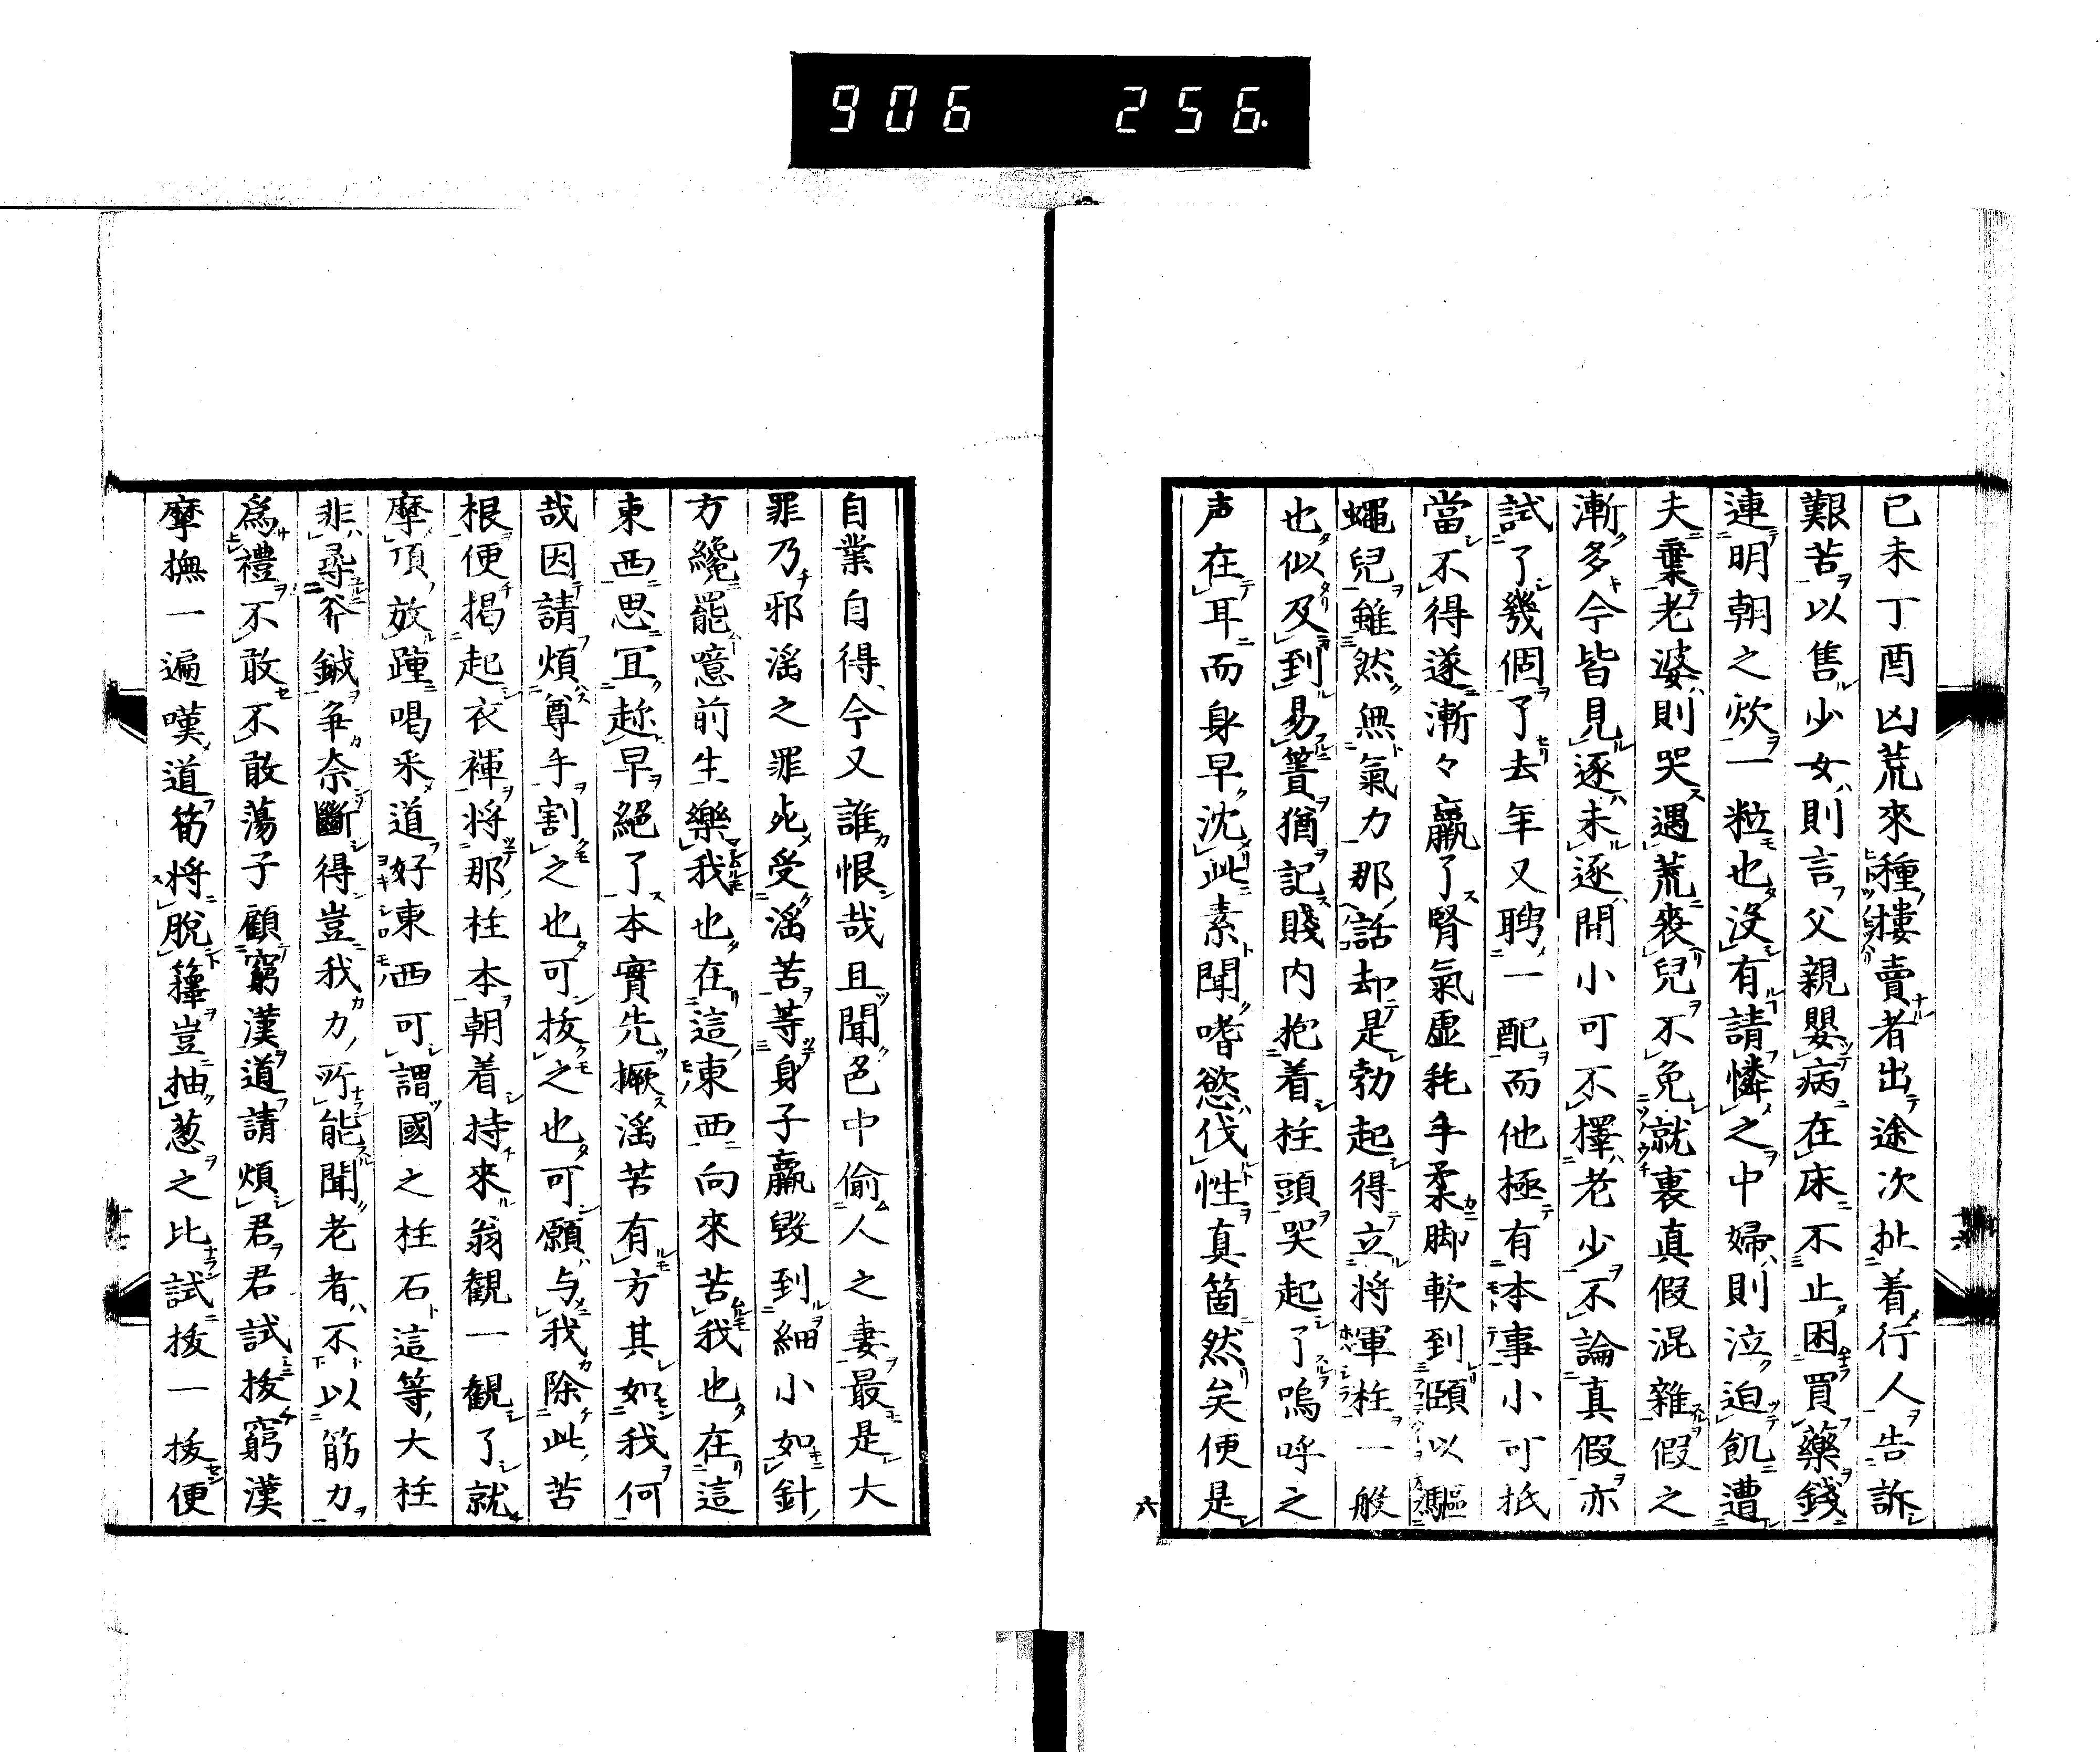 906 256.
已未丁酉凶荒來種摟賣者出途次扯着行人告訴
艱苦以售少女則言父親嬰病在床不止困買藥錢
連明朝之炊一粒也沒有請憐之中婦則泣迫飢遭
夫棄老婆則哭遇荒喪兒不免就裏真假混雜假之
漸多今皆見逐未逐開小可不擇老少不論真假亦
試了幾個了去年又聘一配而他極有本事小可抵
當不得遂漸々羸了腎氣虛耗手柔脚軟到頤以驅
蠅兒雖然無氣力那話却是勃起得立將軍柱一般
也似及到易簀猶記賤内抱着柱頭哭起了嗚呼之
声在耳而身早沈此素聞嗜慾伐性真箇然矣便是
六
自業自得今又誰恨哉且聞色中偷人之妻最是大
罪乃邪滛之罪死受滛苦等身子羸毀到細小如針
方纔罷噫前生樂我也在這東西向來苦我也在這
東西思冝趂早絕了本實先撅滛苦有方其如我何
哉因請煩尊手割之也可拔之也可願与我除此苦
根便揭起衣褌将那柱本朝着持來翁觀一觀了就
摩頂放踵喝釆道好東西可謂國之柱石這等大柱
非尋斧鉞争奈斷得豈我力所能聞老者不以筋力
為禮不敢不敢蕩子顧窮漢道請煩君君試拔窮漢
摩撫一遍嘆道筍将脫籜豈抽葱之比試拔一拔便